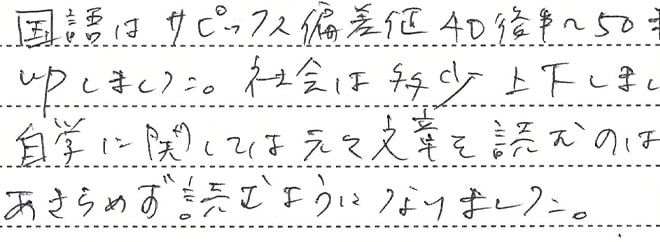 国語はサピックス偏差値40後半～50
upしました。社会は多少上下しまし
自学に関しては元々文章を読むのは
あきらめず読むようになりました。